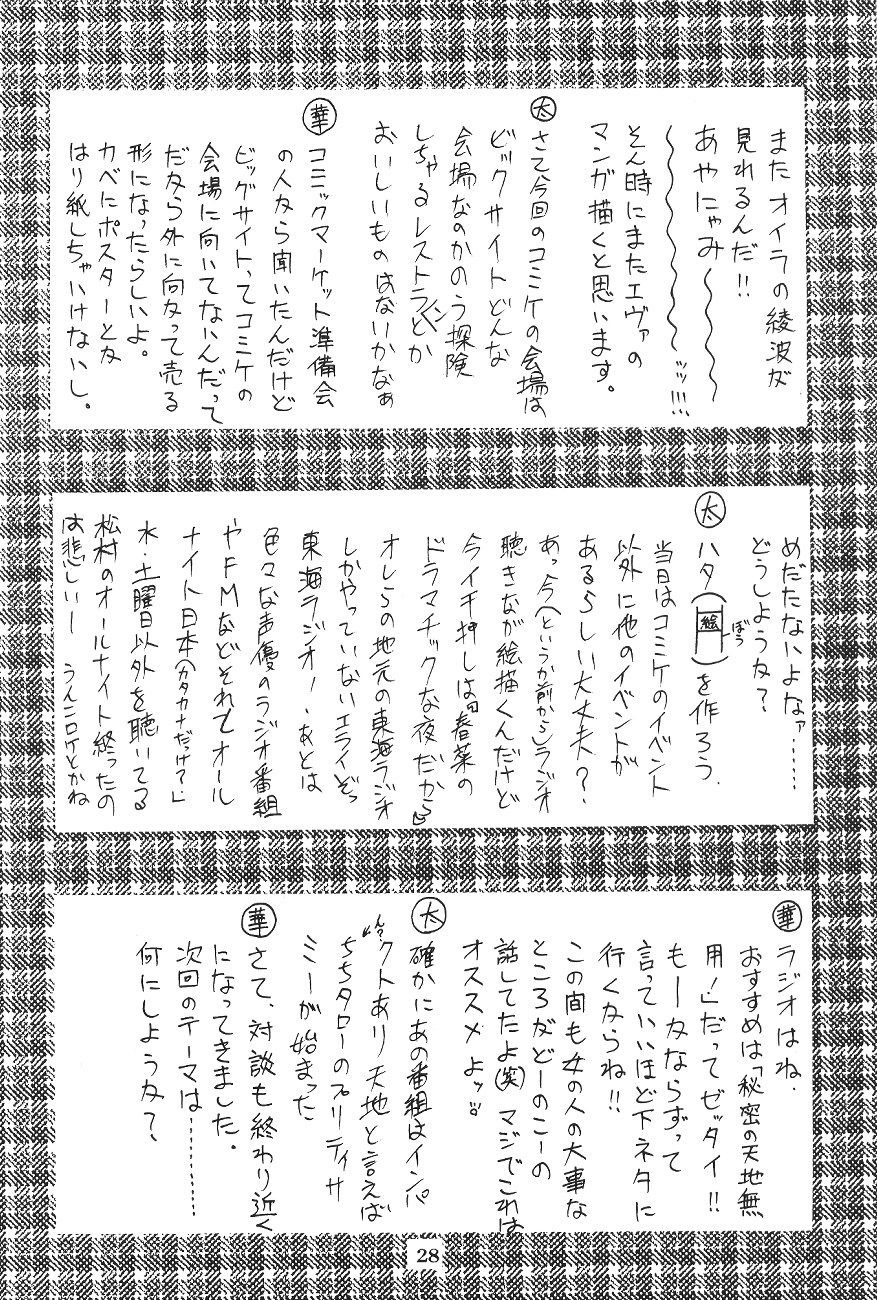 またオイラの綾波が
見れるんだ!!
あやにゃみ〜〜〜
〜〜〜〜〜〜ッッ!!!
そん時にまたエヴァの
マンガ描くと思います。
太 さて今回のコミケの会場は
ビックサイトどんな
会場なのかのう探険
しちゃるレストランとか
おいしいものはないかなぁ
華 コミックマーケット準備会
の人から聞いたんだけど
ビッグサイトってコミケの
会場に向いてないんだって
だから外に向かって売る
形になったらしいよ。
カベにポスターとか
はり紙しちゃいけないし。
めだたないよなァ……
どうしようか?
太 ハタ(絵 ぼう)を作ろう.
当日はコミケのイベント
以外に他のイベントが
あるらしい大丈夫?
あっ今(というか前から)ラジオ
聴きなが絵描くんだけど
今イチ押しは『春菜の
ドラマチックな夜だから』
オレらの地元の東海ラジオ
しかやっていないエライぞっ
東海ラジオ!、あとは
色々な声優のラジオ番組
やFMなどそれとオール
ナイト日本(カタカナだっけ?)
水・土曜日以外を聴いてる
松村のオールナイト終ったの
は悲しいー うんこロケとかね
華 ラジオはね.
おすすめは「秘密の天地無
用!」だってゼッタイ!!
もーかならずって
言っていいほど下ネタに
行くからね!!
この間も女の人の大事な
ところがどーのこーの
話してたよ(笑)マジでこれは
オススメよッ
太 確かにあの番組はインパ
クトあり天地と言えば
ちちタローのプリティサ
ミーが始まった
華 さて、対談も終わり近く
になってきました。
次回のテーマは…………
何にしようか?
28